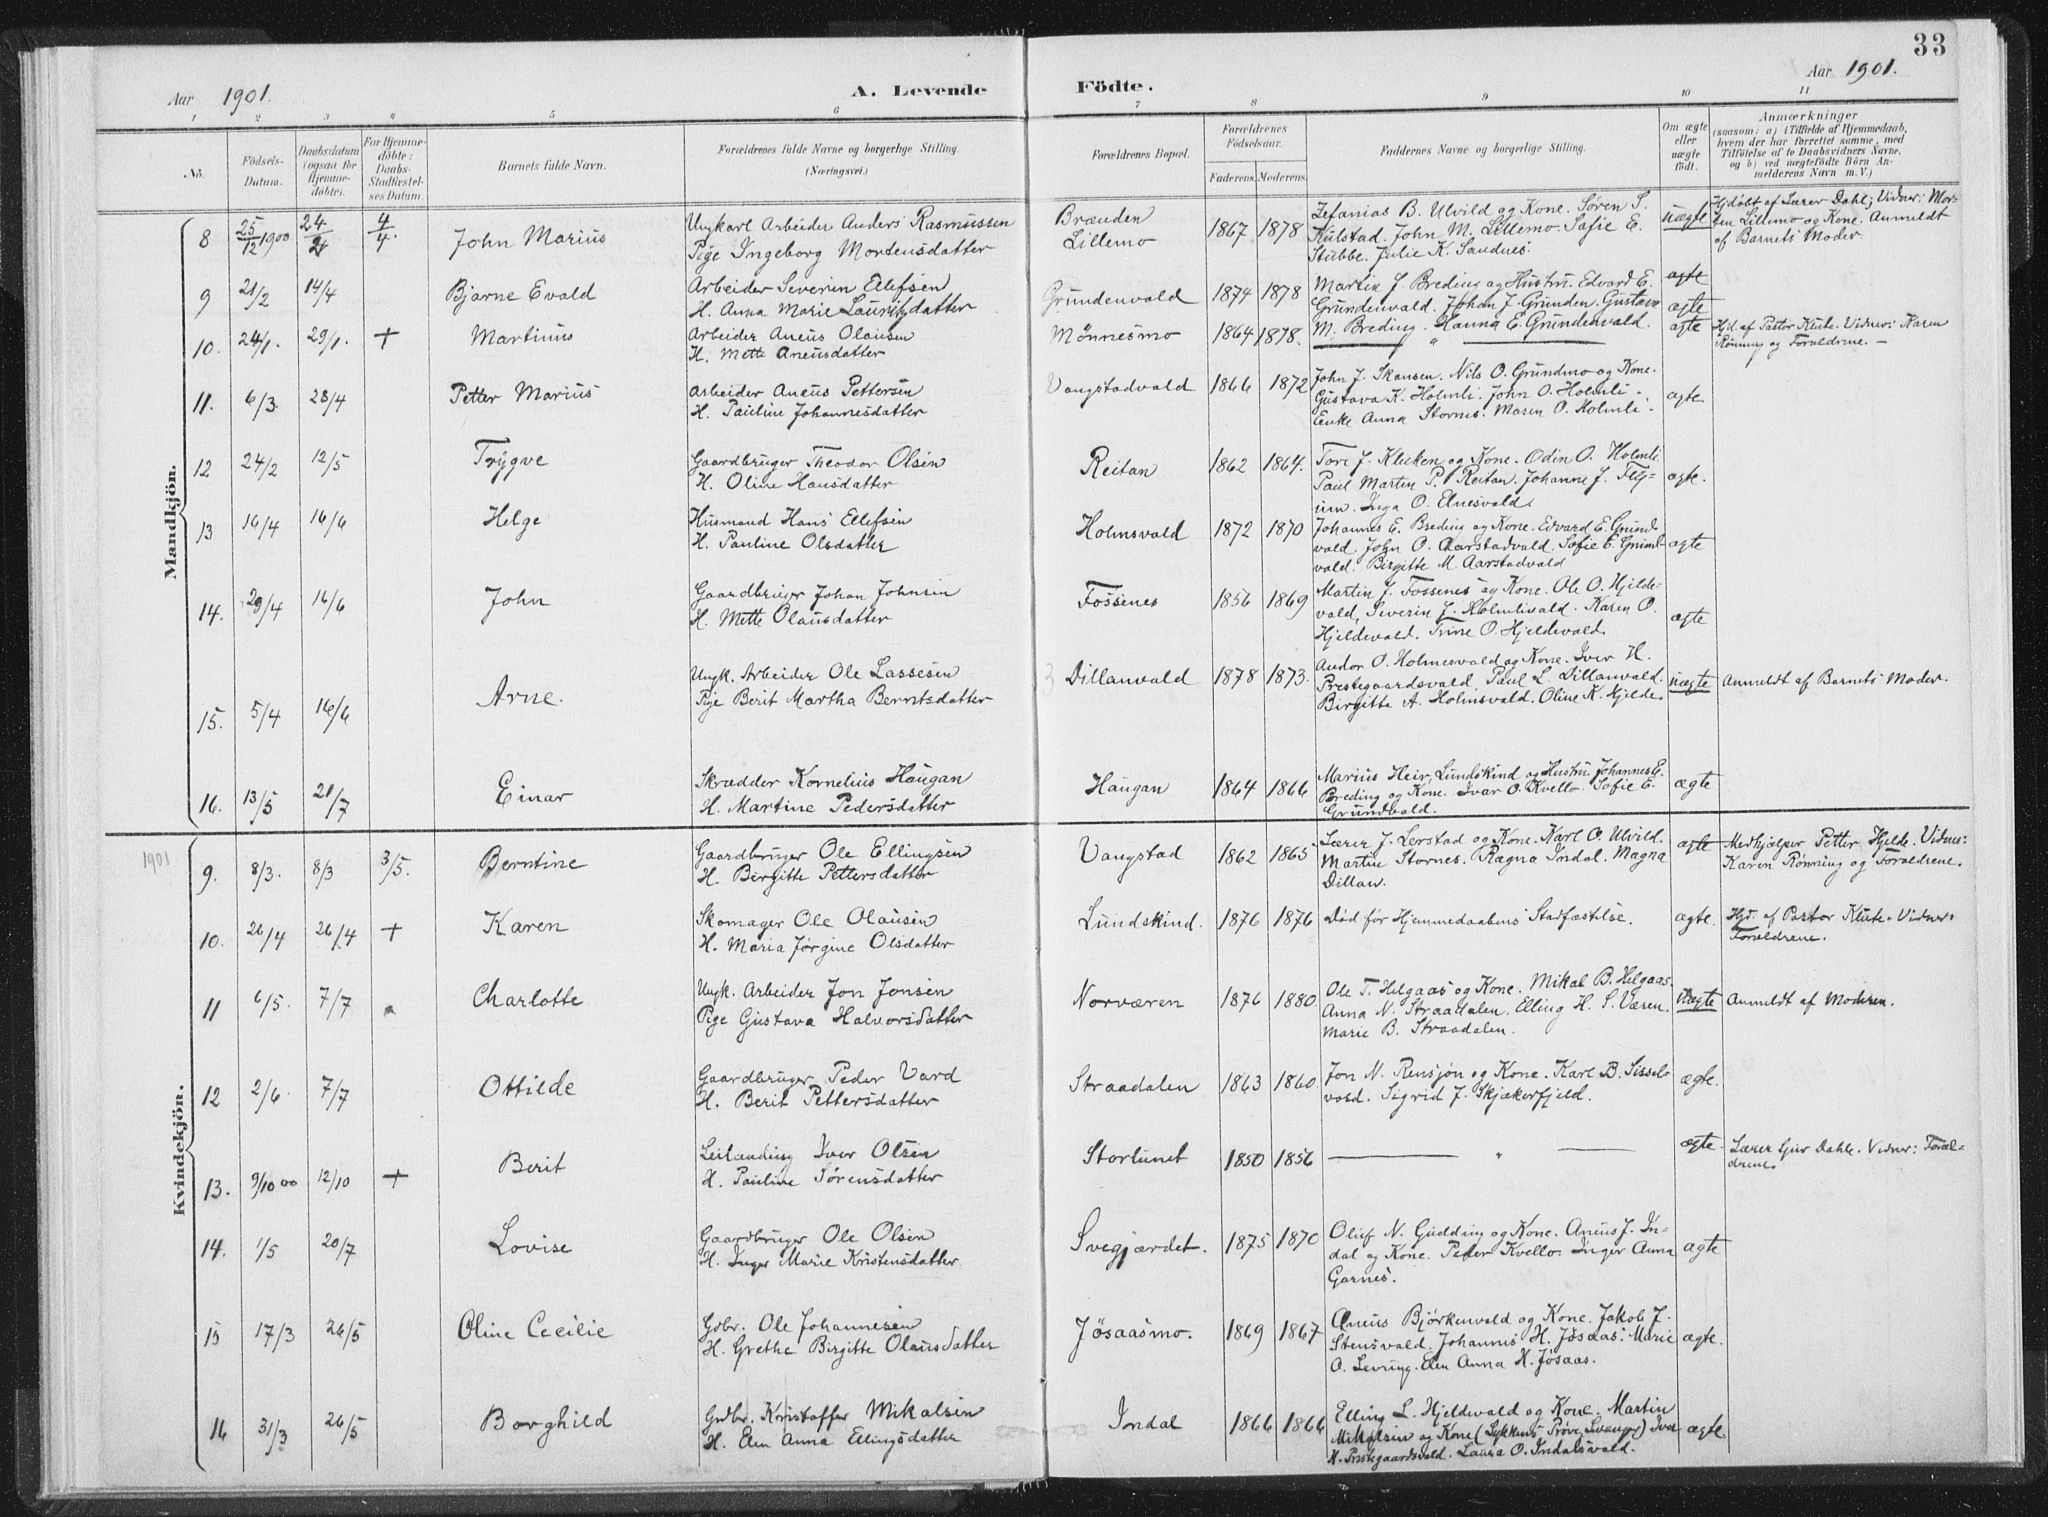 33
Aar 1901. A. Levende Födte. Aar 1901.
1 2 3 4 5 6 7 8 9 10 11
No.
Födsels-
Datum.
Daabsdatum
(ogsaa for
Hjemme-
döbte).
For Hjemme-
döbte:
Daabs-
Stadfæstel-
ses Datum.
Barnets fulde Navn.
Forældrenes fulde Navne og borgerlige Stilling.
(Næringsvei.)
Forældrenes Bopæl.
Forældrenes
Födselsaar.
Faderens. Moderens.
Faddernes Navne og borgerlige Stilling.
Om ægte
eller
uægte
födt.
Anmærkninger
(saasom: a) i Tilfælde af Hjemmedaab,
hvem der har forrettet samme, med
Tilföielse af to Daabsvidners Navne,
og b) ved uegtefödte Börn An-
melderens Navn m. V.)
Mandkjön.
8 25/12 1900 24/2 4/4. John Marius
Ungkarl Arbeider Anders Rasmussen
Pige Ingeborg Mortensdatter
Brænden
Lillemo
1867 1878
Zefanias B. Ulvild og Kone. Søren S.
Kulstad. John M. Lillemo. Sofie E.
Stubbe. Julie K. Sandnes.
uægte
Hjdøbt af Lærer Dahl; Vidner: Mor-
ten Lillemo og Kone. Anmeldt
af Barnets Moder.
9 21/2 14/4 Bjarne Evald
Arbeider Severin Ellefsen
H. Anna Marie Lauritzdatter
Grundenvald 1874 1878
Martin J. Breding og Hustru. Edvard E.
Grundenvald. Johan J. Grunden. Gustava
M. Breding. Hanna E. Grundenvald.
ægte
ægte
10. 24/1. 29/1. + Martinus
Arbeider Aneus Olausen
H. Mette Aneusdatter
Mønnesmo 1864 1878. "
ægte
Hjd. af Pastor Klute. Vidner: Karen
Rønning og Forældrene. —
11. 6/3. 28/4 Petter Marius
Arbeider Aneus Pettersen
H. Pauline Johannesdatter
Vangstadvald 1866 1872
John J. Skansen. Nils O. Grundmo og Kone.
Gustava K. Holmli. John O. Holmli.
Enke Anna Stornes. Maren O. Holmli.
ægte
12 24/2 12/5 Trygve
Gaardbruger Theodor Olsen
H. Oline Hansdatter
Reitan 1862 1864.
Tore J. Kleiken og Kone. Odin O. Holmli
Paul Martin P. Reitan. Johanne J. Flÿ-
um. Inga O. Elnesvald.
ægte.
13 16/4 16/6 Helge
Husmand Hans Ellefsen
H. Pauline Olsdatter
Holmsvald 1872 1870
Johannes E. Breding og Kone. Edvard E. Grund-
vald. John O. Aarstadvald. Sofie E. Grund-
vald. Birgitte M. Aarstadvald
ægte
14. 29/4 16/6 John
Gaardbruger Johan Johnsen
H. Mette Olausdatter
Fossenes 1856 1869
Martin J. Fossenes og Kone. Ole O. Hjelde-
vald, Severin J. Holmlivald. Karen O.
Hjeldevald. Trine O. Hjeldevald.
ægte
15. 5/4 16/6 Arne.
Ungk. Arbeider Ole Lassesen
Pige Berit Martha Berntsdatter
3 Dillanvald 1878 1873.
Andor O. Holmesvald og Kone. Iver H.
Prestegaardsvald. Paul L. Dillanvald.
Birgitte A. Holmsvald. Oline K. Hjelde.
uægte
Anmeldt af Barnets Moder.
16. 13/5 21/7 Einar
Skrædder Kornelius Haugan
H. Martine Pedersdatter
Haugan 1864 1866
Marius Heir, Lundskind og Hustru. Johannes E.
Breding og Kone. Ivar O. Kvello. Sofie E.
Grundvald.
ægte
1901
Kvindekjön.
9. 8/3. 8/3 3/5. Berntine
Gaardbruger Ole Ellingsen
H. Birgitte Pettersdatter
Vangstad 1862 1865
Lærer J. Lerstad og Kone. Karl O. Ulvild.
Martin Stornes. Ragna Indal. Magna
Dillan.
ægte
Medhjælper Petter Hjelde. Vidner:
Karen Rønning og Forældrene.
10. 26/4 26/4 + Karen
Skomager Ole Olausen
H. Maria Jørgine Olsdatter
Lundskind. 1876 1876
Død før Hjemmedaabens Stadfæstelse.
ægte.
Hjd. af Pastor Klute. Vidner:
Forældrene.
11 6/5. 7/7 Charlotte
Ungk. Arbeider Jon Jonsen
Pige Gustava Halvorsdatter
Norværen 1876 1880
Ole T. Helgaas og Kone. Mikal B. Helgaas.
Anna N. Straadalen. Elling H. S. Væren.
Marie B. Straadalen.
uægte
Anmeldt af Moderen.
12 2/6. 7/7 Ottilde
Gaardbruger Peder Vard
H. Berit Pettersdatter
Straadalen 1863 1860
Jon N. Rensjøn og Kone. Karl B. Sissel-
vold. Sigrid J. Skjækerfjeld.
ægte.
13. 9/10 00 12/10 + Berit
Leilænding Iver Olsen
H. Pauline Sørensdatter
Storlunet 1850 1856
— " —
ægte
Lærer Dahle. Vidner: Foræl-
drene.
14. 1/5 20/7 Lovise
Gaardbruger Ole Olsen
H. Inger Marie Kristensdatter.
Svegjærdet. 1875 1870
Oluf N. Gudding og Kone. Aneus J. In-
dal og Kone. Peder Kvello. Inger Anna
Garnes.
ægte
15 17/3 26/5 Oline Cecilie
Gdbr. Ole Johannesen
H. Grethe Birgitte Olausdatter
Jøsaasmo. 1869 1867
Aneus Bjørkenvald og Kone. Jakob J.
Stensvald. Johannes H. Jøsaas. Marie
O. Levring. Elen Anna H. Jøsaas.
ægte.
16 31/3 26/5 Borghild
Gdbr. Kristoffer Mikalsen
H. Elen Anna Ellingsdatter
Indal 1866 1866
Elling L. Hjeldevald og Kone. Martin
Mikalsen og Kone (Lykkens Prøve, Levanger) Iver
H. Prestegaardsvald. Laura O. Indalsvald.
ægte.